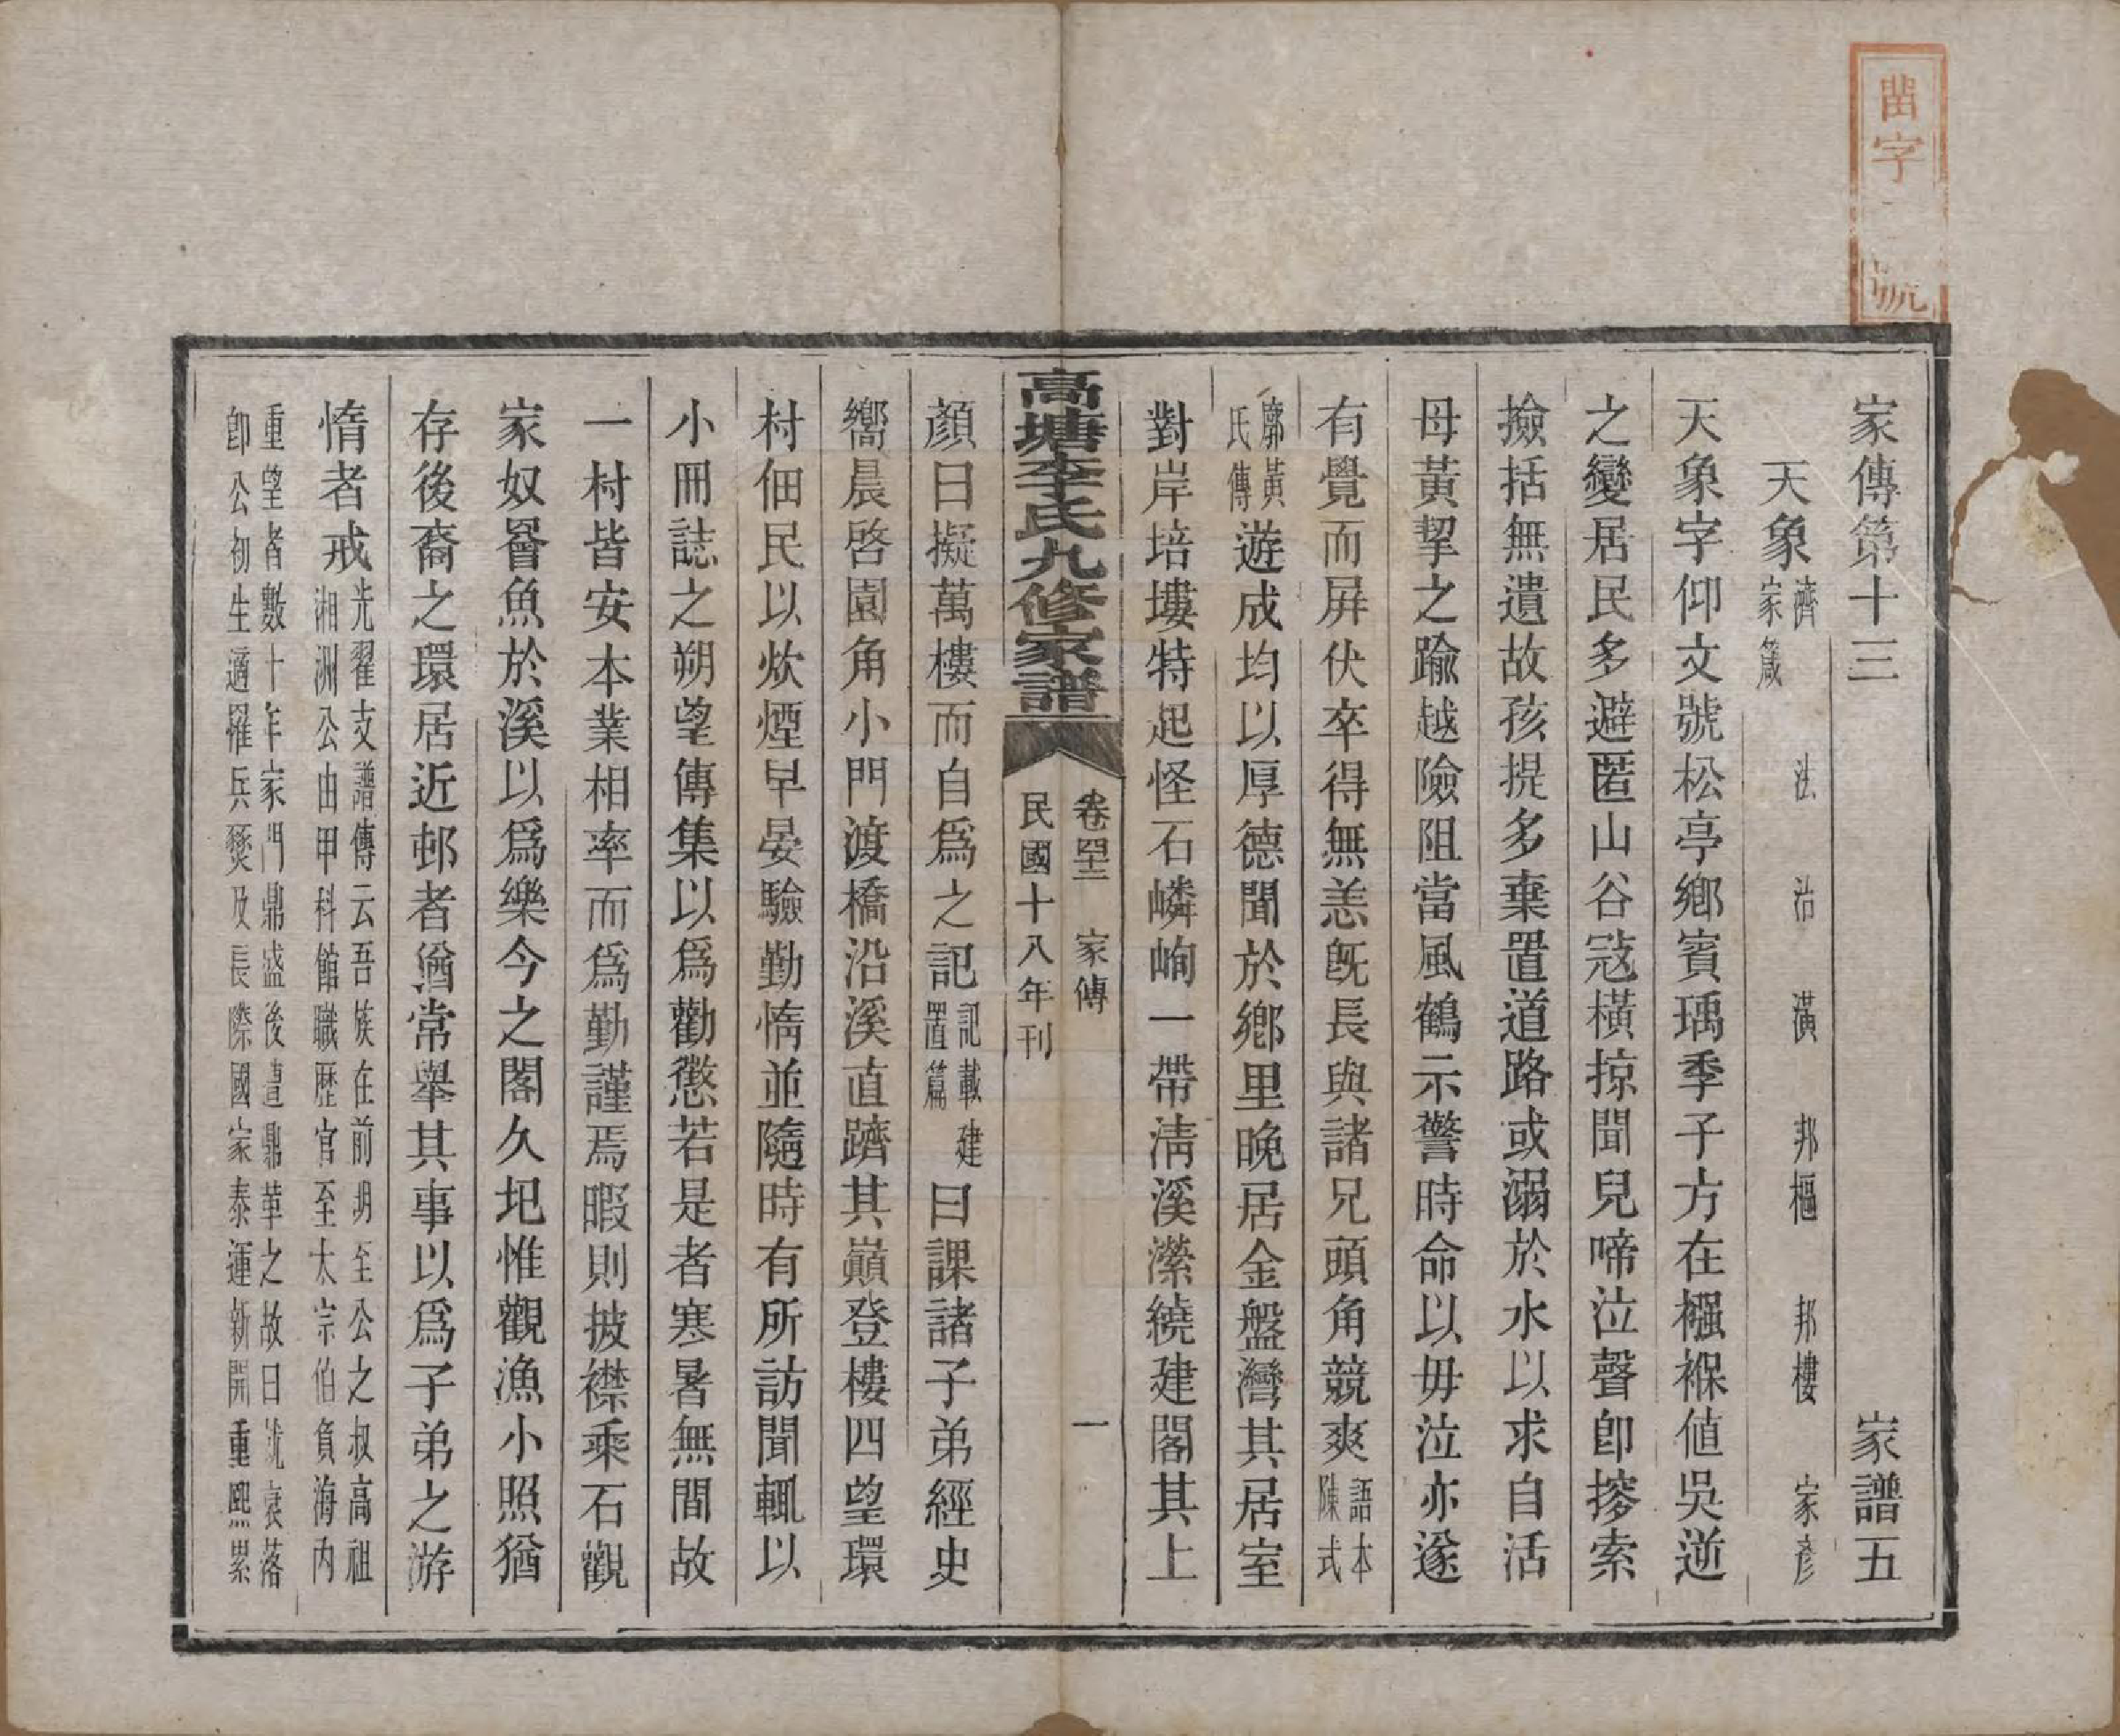 家傳第十三　家譜五
天象 濟家箴　法　治　潢　邦樞　邦樓　家彥
天象字仰文號松亭鄉賓瑀季子方在襁褓值吳逆
之變居民多避匿山谷寇橫掠聞兒啼泣聲卽搜索
撿括無遺故孩提多棄置道路或溺於水以求自活
母黃挈之踰越險阻當風鶴示警時命以毋泣亦遂
有覺而屏伏卒得無恙既長與諸兄頭角競爽 語本陳式
廓黃氏傳 遊成均以厚德聞於鄉里晚居金盤灣其居室
對岸培塿特起怪石嶙峋一帶淸溪瀠繞建閣其上
高塘李氏九修家譜
卷四十三　家傳　一
民國十八年刊
顏曰擬萬樓而自爲之記 記載建置篇 日課諸子弟經史
嚮晨啓園角小門渡橋沿溪直躋其巔登樓四望環
村佃民以炊煙早晏驗勤惰並隨時有所訪聞輒以
小冊誌之朔望傳集以爲勸懲若是者寒暑無間故
一村皆安本業相率而爲勤謹焉暇則披襟乘石觀
家奴罾魚於溪以爲樂今之閣久圯惟觀漁小照猶
存後裔之環居近邨者猶常舉其事以爲子弟之游
惰者戒 光翟支譜傳云吾族在前明至公之叔高祖
湘洲公由甲科館職歷官至大宗伯負海內
重望者數十年家門鼎盛後遭鼎革之故日就衰落
卽公初生適罹兵燹及長際國家泰運新開重熙累
凿字 號